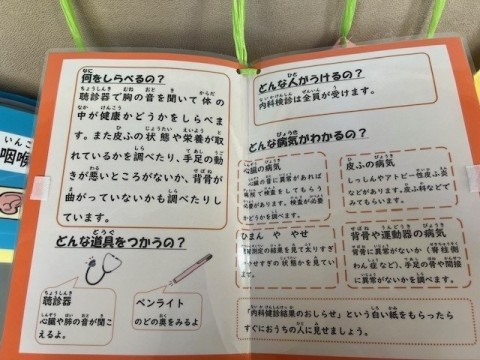 何をしらべるの？
聴診器で胸の音を聞いて体の
中が健康かどうかをしらべま
す。また皮ふの状態や栄養が取
れているかを調べたり、手足の動
きが悪いところがないか、背骨が
曲がっていないかも調べたりし
ています。
どんな道具をつかうの？
聴診器
心臓や肺の音が聞こ
えるよ。
ペンライト
のどの奥をみるよ
どんな人がうけるの？
内科検診は全員が受けます。
どんな病気がわかるの？
心臓の病気
心臓の音に異常があれば
病院で検査をしてもらう
必要があります。検査が必要
かどうかを調べます。
皮ふの病気
しっしんやアトピー性皮ふ炎
などがあります。皮ふ科などで
みてもらいます。
ひまん や やせ
測定の結果を見て太りすぎ
やせすぎの状態かを見てい
ます。
背骨や運動器の病気
背骨に異常がないか（脊柱側
わん症など）、手足の骨や関節
に異常がないかを調べます。
「内科健診結果のおしらせ」という白い紙をもらったら
すぐにおうちの人に見せましょう。
咽喉